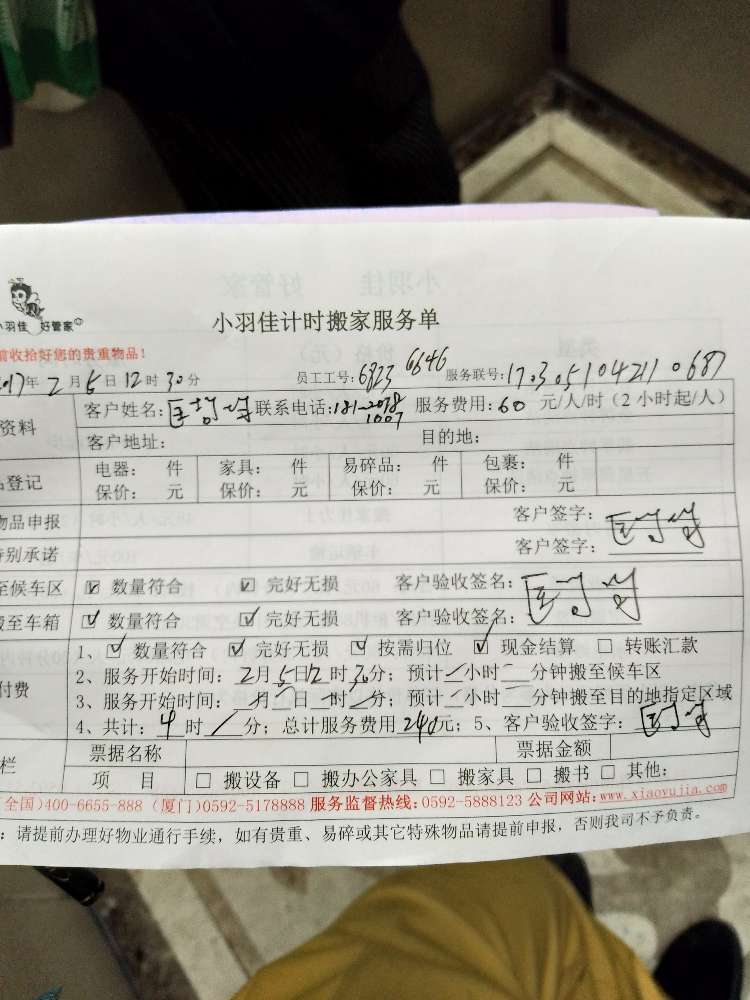 小羽佳 好管家
小羽佳 好管家
小羽佳计时搬家服务单
前收拾好您的贵重物品!
2017年 2月5日12时30分 员工工号:6823 6646 服务联号:17030510421110687
资料 客户姓名: 联系电话:181-2078 1007 服务费用:60 元/人/时(2小时起/人)
客户地址: 目的地:
登记 电器: 件 家具: 件 易碎品: 件 包裹: 件
保价: 元 保价: 元 保价: 元 保价: 元
物品申报 客户签字:
特别承诺 客户签字:
至候车区 ☑ 数量符合 ☑ 完好无损 客户验收签名:
搬至车箱 ☑ 数量符合 ☑ 完好无损 客户验收签名:
付费 1、☑ 数量符合 ☑ 完好无损 ☑ 按需归位 ☑ 现金结算 □ 转账汇款
2、服务开始时间:2月5日12时30分;预计/小时 分钟搬至候车区
3、服务开始时间: 月 日 时 分;预计/小时 分钟搬至目的地指定区域
4、共计:4时/分;总计服务费用240元;5、客户验收签字:
栏 票据名称 票据金额
项 目 □ 搬设备 □ 搬办公家具 □ 搬家具 □ 搬书 □ 其他:
全国)400-6655-888 (厦门)0592-5178888 服务监督热线:0592-5888123 公司网站:www.xiaoyujia.com
:请提前办理好物业通行手续,如有贵重、易碎或其它特殊物品请提前申报,否则我司不予负责。